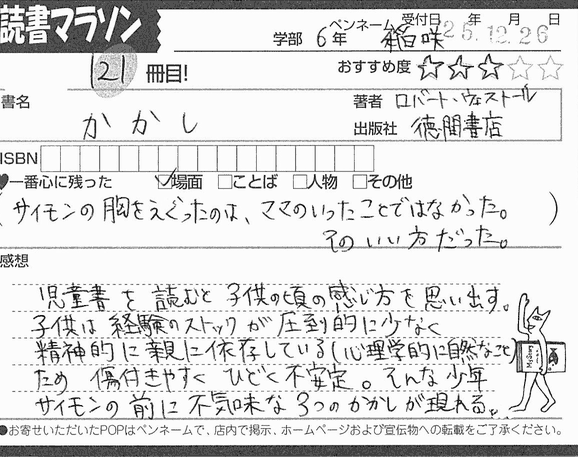 読書マラソン
学部 6年 ペンネーム 稲咲 受付日 年 月 日
25.12.26
121 冊目!
おすすめ度 ★★★☆☆
書名 かかし
著者 ロバート・ウェストール
出版社 徳間書店
ISBN
♥一番心に残った ☑場面 □ことば □人物 □その他
(サイモンの胸をえぐったのは、ママのいったことではなかった。)
そのいい方だった。
感想
児童書を読むと子供の頃の感じ方を思い出す。
子供は経験のストックが圧倒的に少なく
精神的に親に依存している(心理学的に自然なこと)
ため 傷付きやすく ひどく不安定。そんな少年
サイモンの前に不気味な3つのかかしが現れる。
●お寄せいただいたPOPはペンネームで、店内で掲示、ホームページおよび宣伝物への転載をご了承ください。